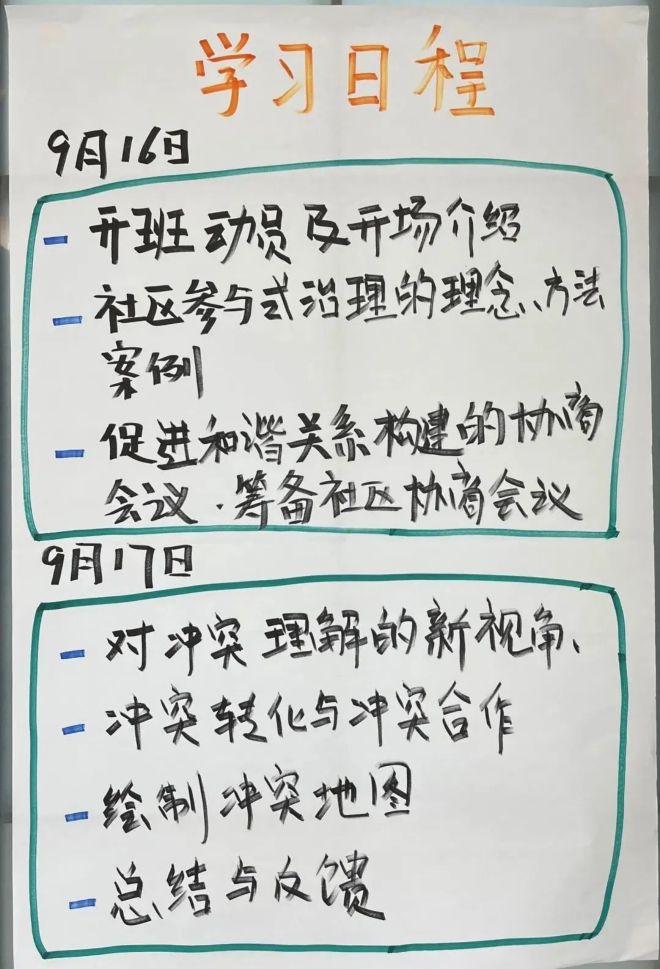 学习日程
9月16日
- 开班动员及开场介绍
- 社区参与式治理的理念、方法
案例
- 促进和谐关系构建的协商
会议.筹备社区协商会议
9月17日
- 对冲突理解的新视角、
- 冲突转化与冲突合作
- 绘制冲突地图
- 总结与反馈